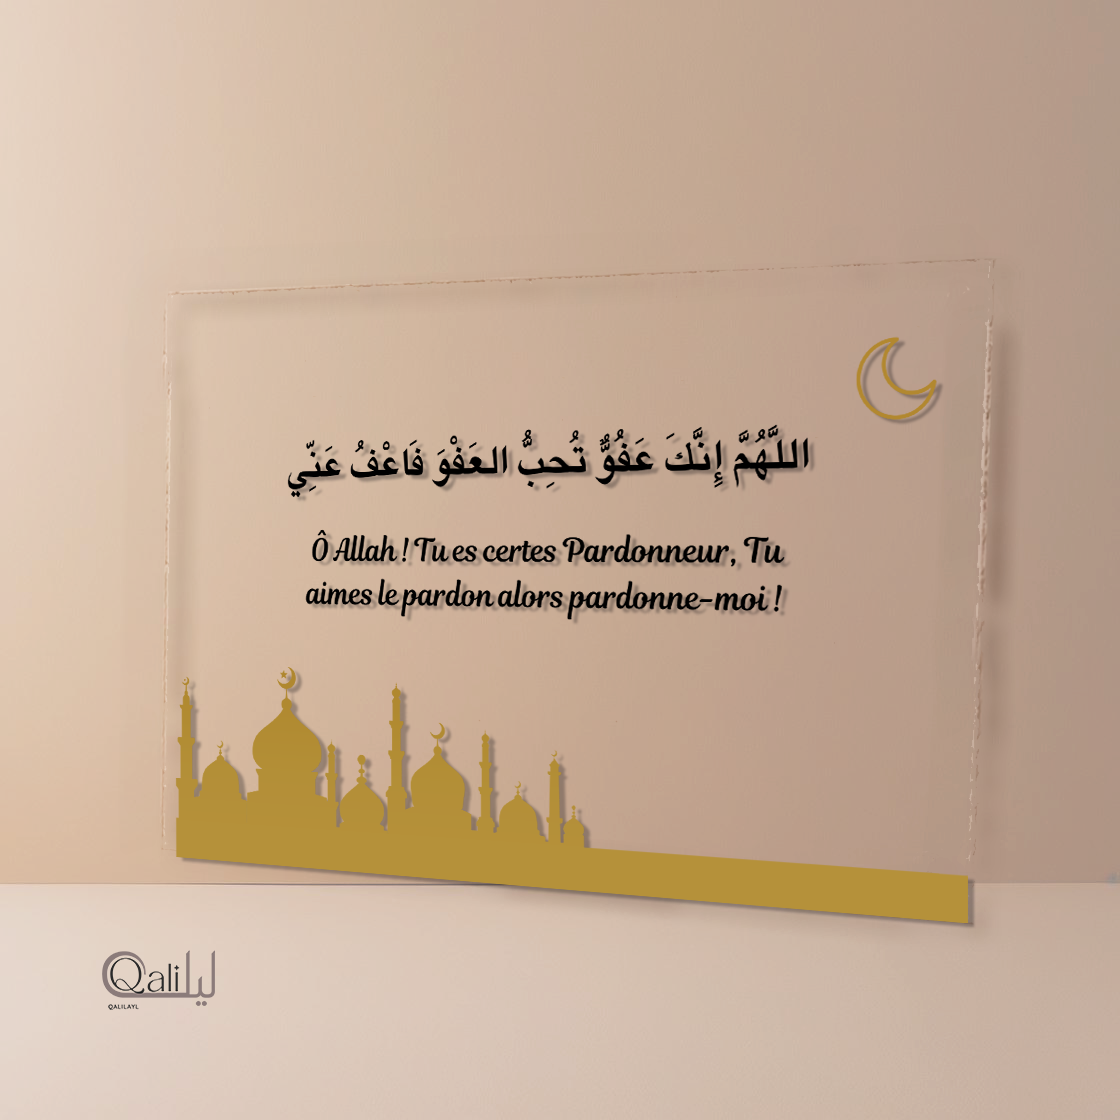 اللَّهُمَّ إِنَّكَ عَفُوٌّ تُحِبُّ العَفْوَ فَاعْفُ عَنِّي
Ô Allah ! Tu es certes Pardonneur, Tu
aimes le pardon alors pardonne-moi !
Qali ليل
QALILAYL